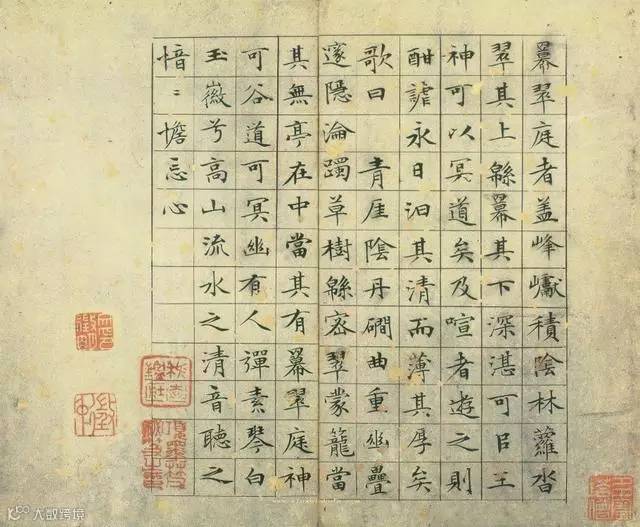 羃翠庭者盖峰巘積陰林蘿沓
翠其上緜羃其下深湛可㠯王
神可以冥道矣及喧者遊之則
酣謔永日汨其清而薄其厚矣
歌曰 青崖陰丹磵曲重幽疊
邃隠淪躅草樹緜宻翠蒙籠當
其無亭在中當其有羃翠庭神
可谷道可冥幽有人彈素琴白
玉徽兮高山流水之清音聽之
愔〻憺忘心
大数跨境